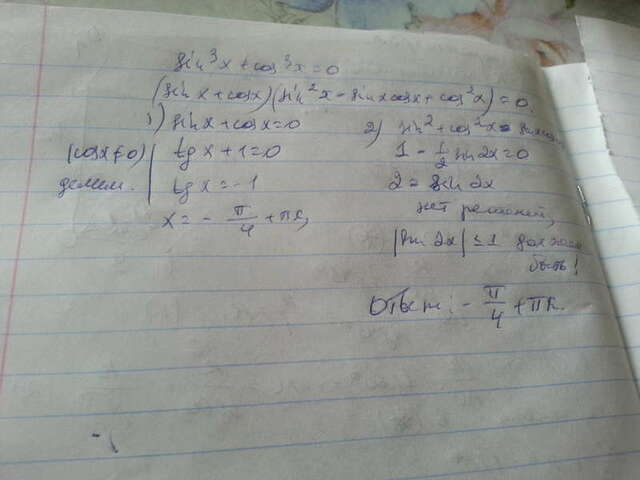 sin³x + cos³x = 0
(sin x + cos x)(sin²x - sin x cos x + cos²x) = 0.
1) sin x + cos x = 0
(cos x ≠ 0) делим.
tg x + 1 = 0
tg x = -1
x = - π/4 + πk,
2) sin² + cos²x - sin x cos x
1 - 1/2 sin 2x = 0
2 = sin 2x
нет решений,
|sin 2x| ≤ 1 должно
быть!
Ответ: - π/4 + πk.